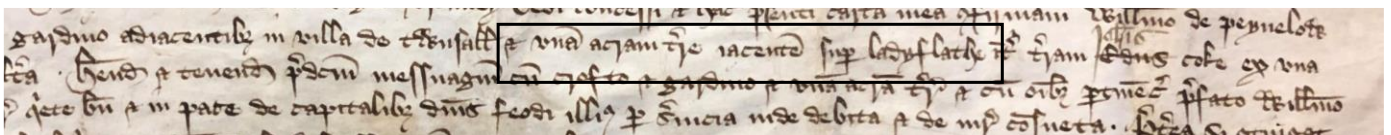 dedi concessi & hac p̄senti carta mea ꝯfirmaui Willmo de peyuelore
gardino adiacentibȝ in villa de & vnā acram t̄re iacentē suꝑ ladyflathe int̄ t̄ram Johis coke ex vna
Hend̄ & tenend̄ p̄dcm̄ messuagiū cū crofto & gardino & vnā acrā t̄re & cū oībȝ ꝑtinenc̄ p̄fato Willmo
q̄ete bn̄ & in pace de capitalibȝ dn̄is feodi illiꝰ ꝑ s̄uicia inde debita & de iur̄ cōsueta.